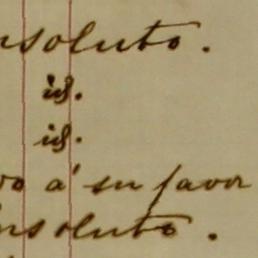 nsoluto.
id.
id.
vo á su favor
nsoluto.